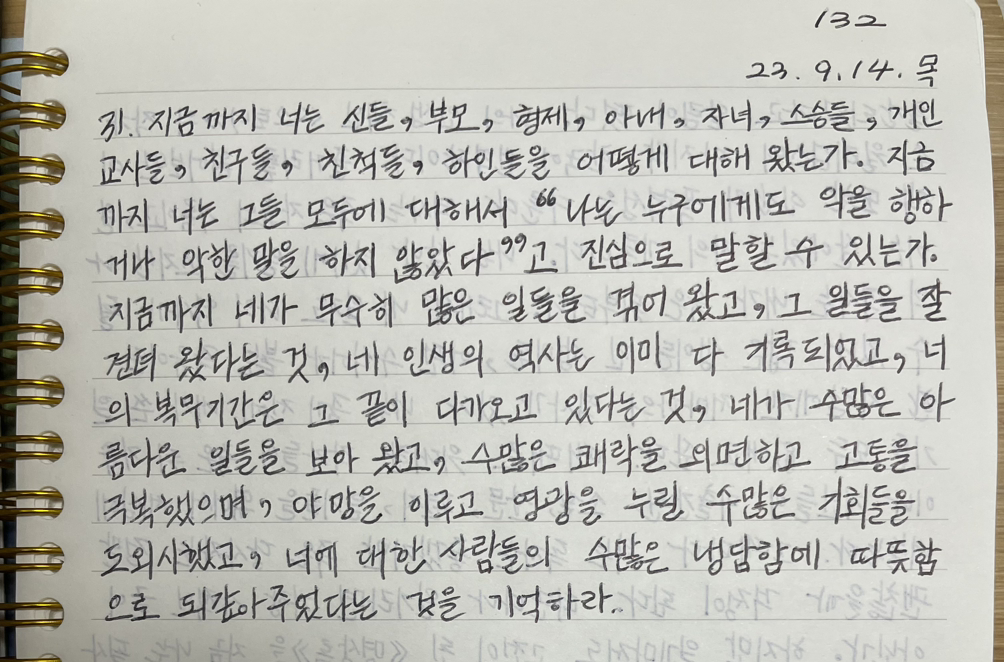 132
23. 9. 14. 목
31. 지금까지 너는 신들, 부모, 형제, 아내, 자녀, 스승들, 개인
교사들, 친구들, 친척들, 하인들을 어떻게 대해 왔는가. 지금
까지 너는 그들 모두에 대해서 "나는 누구에게도 악을 행하
거나 악한 말을 하지 않았다"고 진심으로 말할 수 있는가.
지금까지 네가 무수히 많은 일들을 겪어 왔고, 그 일들을 잘
견뎌 왔다는 것, 네 인생의 역사는 이미 다 기록되었고, 너
의 복무기간은 그 끝이 다가오고 있다는 것, 네가 수많은 아
름다운 일들을 보아 왔고, 수많은 쾌락을 외면하고 고통을
극복했으며, 야망을 이루고 영광을 누릴 수많은 기회들을
도외시했고, 너에 대한 사람들의 수많은 냉담함에 따뜻함
으로 되갚아주었다는 것을 기억하라.